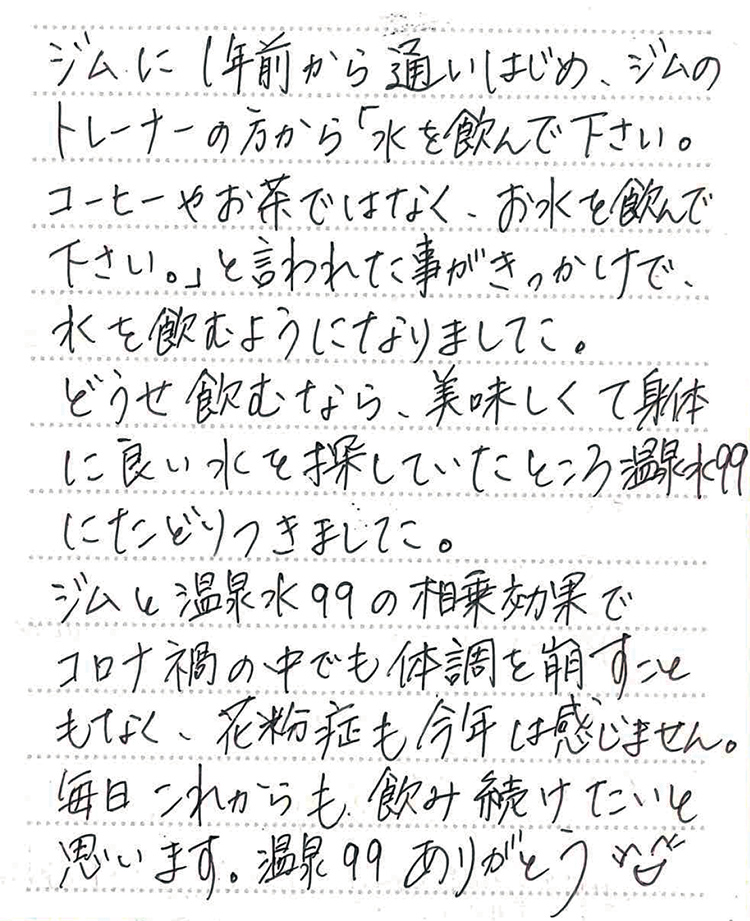 ジムに1年前から通いはじめ、ジムの
トレーナーの方から「水を飲んで下さい。
コーヒーやお茶ではなく、お水を飲んで
下さい。」と言われた事がきっかけで、
水を飲むようになりました。
どうせ飲むなら、美味しくて身体
に良い水を探していたところ温泉水99
にたどりつきました。
ジムと温泉水99の相乗効果で
コロナ禍の中でも体調を崩すこと
もなく、花粉症も今年は感じません。
毎日これからも飲み続けたいと
思います。温泉99ありがとう